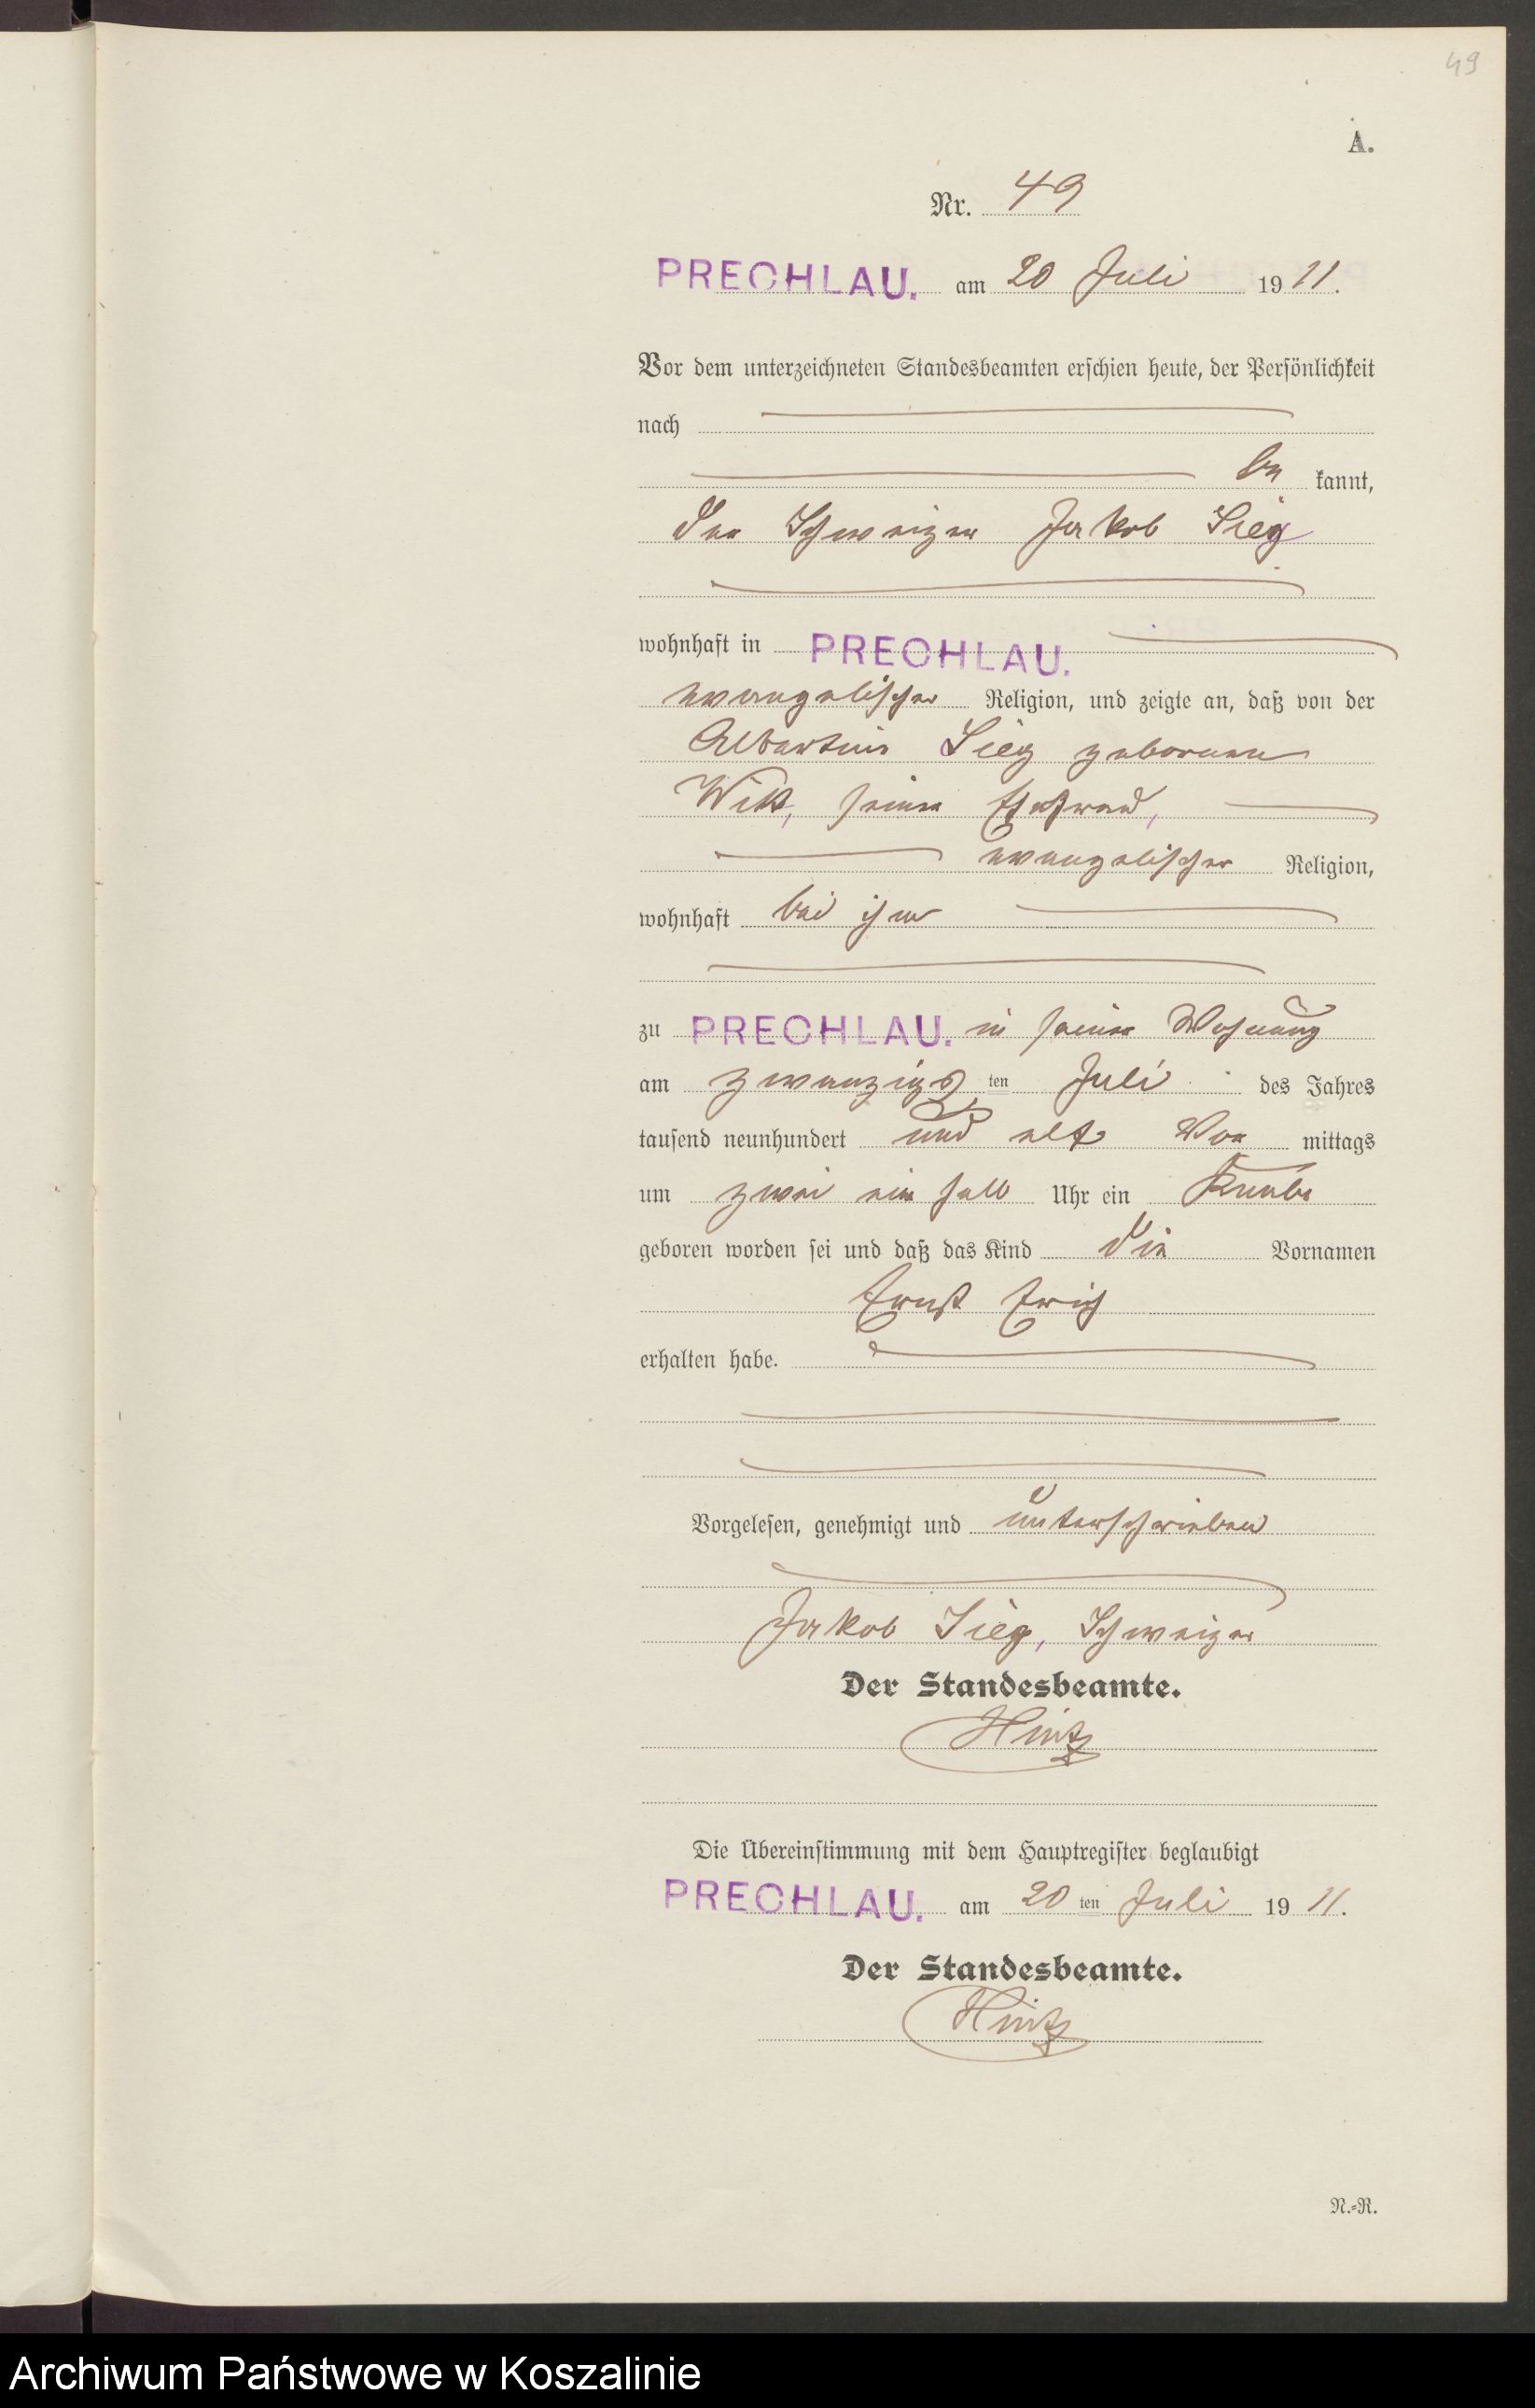 49
A.
Nr. 49
PRECHLAU. am 20 Juli 1911.
Vor dem unterzeichneten Standesbeamten erschien heute, der Persönlichkeit
nach
be kannt,
der Schweizer Jakob Sieg
wohnhaft in PRECHLAU.
evangelischer Religion, und zeigte an, daß von der
Albertine Sieg geborenen
Witt, seiner Ehefrau,
evangelischer Religion,
wohnhaft bei ihm
zu PRECHLAU. in seiner Wohnung
am zwanzigsten Juli des Jahres
tausend neunhundert und elf Vor mittags
um zwei ein halb Uhr ein Knabe
geboren worden sei und daß das Kind die Vornamen
Ernst Erich
erhalten habe.
Vorgelesen, genehmigt und unterschrieben
Jakob Sieg, Schweizer
Der Standesbeamte.
Hintz
Die Übereinstimmung mit dem Hauptregister beglaubigt
PRECHLAU. am 20 ten Juli 1911.
Der Standesbeamte.
Hintz
N.=R.
Archiwum Państwowe w Koszalinie